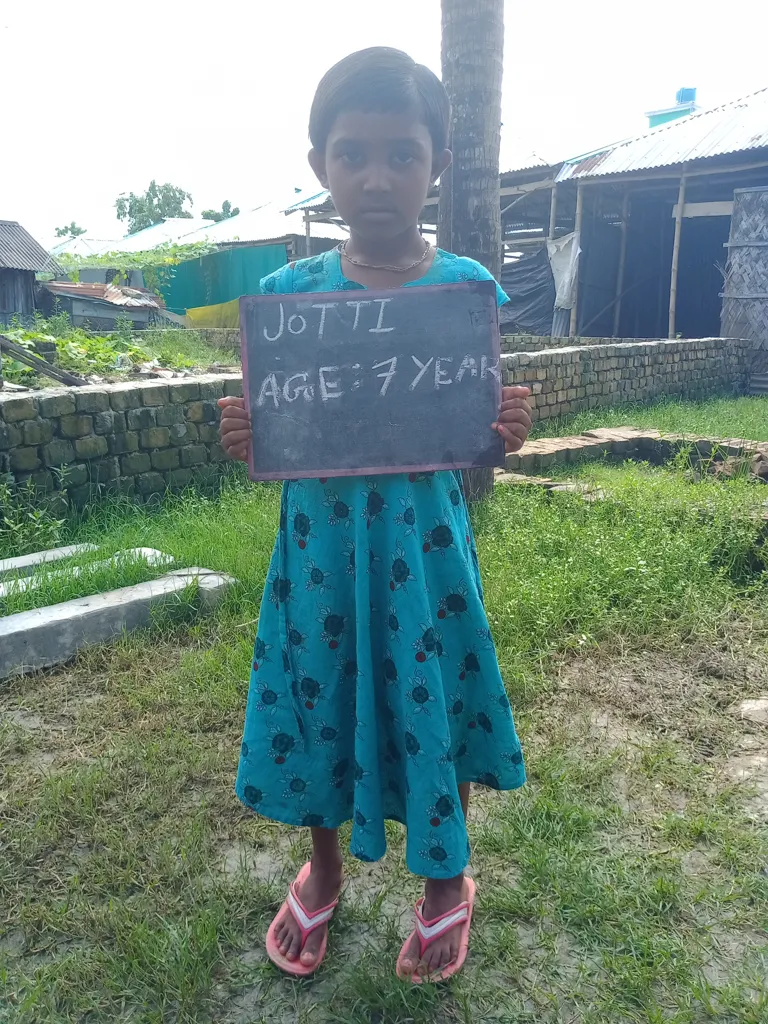 JOTTI
AGE: 7 YEAR